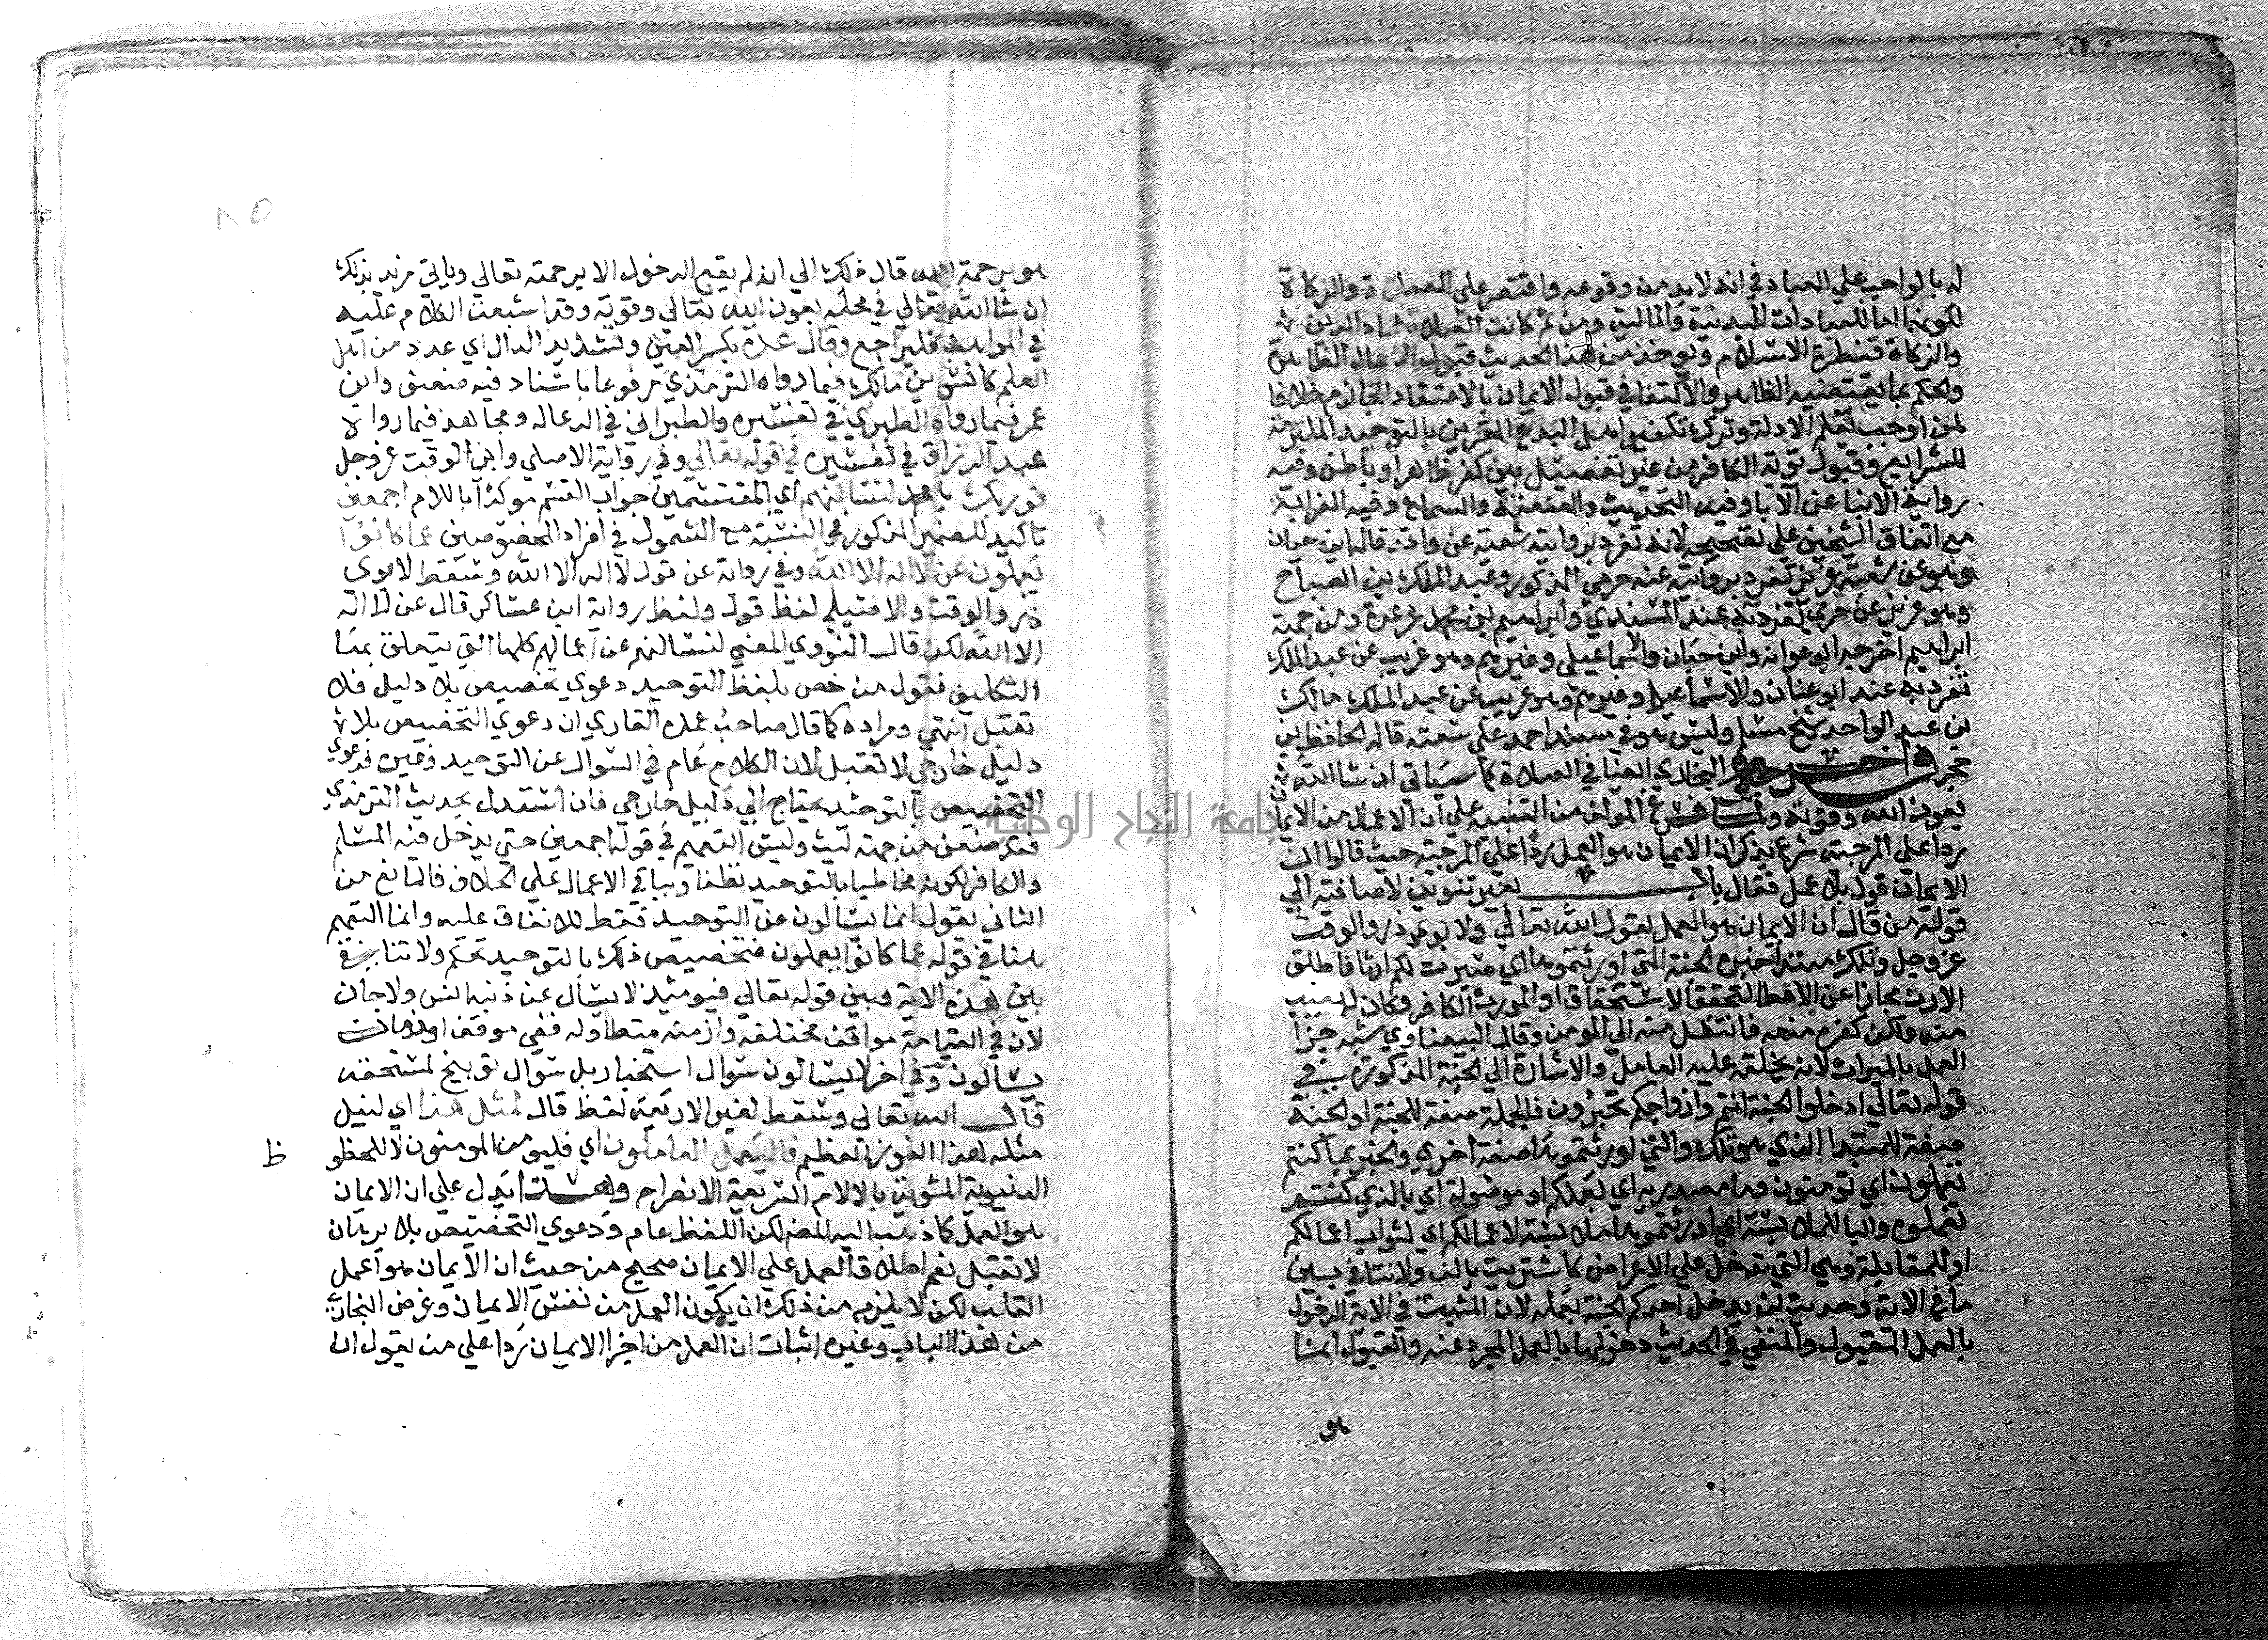 له بالواجب علي العباد في انه لا بد من وقوعه واقتصر علي الصلاة والزكاة
لكونهما اما للعبادات البدنية والمالية ومن ثم كانت الصلاة عماد الدين
والزكاة قنطرة الاسلام ويوخذ من هذا الحديث قبول الاعمال الظاهرة
والحكم بما يقتضيه الظاهر والاكتفا في قبول الايمان بالاعتقاد الجازم خلافا
لمن اوجب تعلم الادلة وترك تكفير اهل البدع المقرين بالتوحيد الملتزمة
للشرايع وقبول توبة الكافر من غير تفصيل بين كفر ظاهر او باطن وفيه
رواية الابنا عن الابا وفيه التحديث والعنعنة والسماع وفيه الغرابة
مع اتفاق الشيخين علي تصحيحه لانه تفرد بروايته شعبة عن واقد قاله ابن حبان
وهو عن شعبة عزيز تفرد بروايته عنه حرمي المذكور وعبد الملك بن الصباح
وهو عزيز عن حرمي تفرد به عنه المسندي وابراهيم بن محمد بن عرعرة ومن جهة
ابراهيم اخرجه ابو عوانه وابن حبان والاسماعيلي وغيرهم وهو غريب عن عبد الملك
تفرد به عنه ابو غسان والاسماعيلي وغيرهم وهو غريب عن عبد الملك مالك
بن عبد الواحد شيخ مسلم وليس هو في مسند احمد علي سعته قاله الحافظ بن
حجر واخرجه البخاري ايضا في الصلاة كما سياتي ان شا الله
بعون الله وقوته ولما فرغ المولف من التنبيه علي ان الاعمال من الايمان
ردا علي المرجية شرع يذكر ان الايمان هو العمل ردا علي المرجية حيث قالوا ان
الايمان قول بلا عمل فقال باب بغير تنوين لاضافته الي
قوله من قال ان الايمان هو العمل لقول الله تعالي ولابوي ذر والوقت
عز وجل وتلك مبتدا خبره الجنة التي اورثتموها اي صيرت لكم ارثا فاطلق
الارث مجازا عن الاعطا لتحقق الاستحقاق او المورث الكافر وكان له نصيب
منه ولكن كفره منعه فانتقل منه الي المومن وقال البيضاوي شبه جزا
العمل بالميراث لانه يخلفه عليه العامل والاشارة الي الجنة المذكورة في
قوله تعالي ادخلوا الجنة انتم وازواجكم تحبرون فالجملة صفة للجنة او الجنة
صفة للمبتدا الذي هو تلك والتي اورثتموها صفة اخري والخبر بما كنتم
تعملون اي تومنون وما مصدرية اي بعملكم او موصولة اي بالذي كنتم
تعملوه والبا للملابسة اي اورثتموها ملابسة لاعمالكم اي لثواب اعمالكم
او للمقابلة وهي التي تدخل علي الاعواض كما شتريت بالف ولا تنافي بين
ما في الاية وحديث لن يدخل احدكم الجنة بعمله لان المثبت في الاية الدخول
بالعمل المقبول والمنفي في الحديث دخولها بالعمل المجرد عنه والقبول انما
هو
هو برحمة الله قال ذلك الي انه لم يقع الدخول الا برحمته تعالي وياتي مزيد بذلك
ان شا الله تعالي في محله بعون الله تعالي وقوته وقد اشبعت الكلام عليه
في المواهب فليراجع وقال عدة بكسر العين وتشديد الدال اي عدد من اهل
العلم كانس بن مالك فيما رواه الترمذي مرفوعا باسناد فيه ضعف وابن
عمر فيما رواه الطبري في تفسيره والطبراني في الدعاله ومجاهد فيما رواه
عبد الرزاق في تفسيره في قوله تعالي وفي رواية الاصيلي وابي الوقت عز وجل
فوربك يا محمد لنسالنهم اي المقتسمين جواب القسم موكدا باللام اجمعين
تاكيد للضمير المذكور في النسبة مع الشمول في افراد المخصوصين عما كانوا
يعملون عن لا اله الا الله وفي رواية عن قول لا اله الا الله وسقط لابوي
ذر والوقت والاصيلي لفظ قول ولفظ رواية ابن عساكر قال عن لا اله
الا الله لكن قال النووي المعني لنسالنهم عن اعمالهم كلها التي يتعلق بها
التكليف فقول من خص بلفظ التوحيد دعوي تخصيص بلا دليل فلا
تقبل انتهي ومراده كما قال صاحب عمدة القاري ان دعوي التخصيص بلا
دليل خارجي لا تقبل لان الكلام عام في السوال عن التوحيد وغيره فدعوي
التخصيص بالتوحيد يحتاج الي دليل خارجي فان استدل بحديث الترمذي
فقد ضعف من جهة ليث وليس التعميم في قوله اجمعين حتي يدخل فيه المسلم
والكافر لكونه مخاطبا بالتوحيد قطعا وبباقي الاعمال علي الخلاف فالمانع من
الثاني يقول انما يسالون عن التوحيد فقط للاتفاق عليه وانما التعميم
هنا في قوله عما كانوا يعملون فتخصيص ذلك بالتوحيد تحكم ولا تنافي
بين هذه الاية وبين قوله تعالي فيومئذ لا يسال عن ذنبه انس ولا جان
لان في القيامة مواقف مختلفه وازمنه متطاوله ففي موقف او زمان
يسالون وفي اخر لا يسالون سوال استخبار بل سوال توبيخ لمستحقه
قال الله تعالي وسقط لغير الاربعة لفظ قال لمثل هذا اي لنيل
مثله هذا الفوز العظيم فاليعمل العاملون اي فليومن المومنون لا للحظوظ
الدنيوية المشوبة بالالام السريعة الانصرام وهذا يدل علي ان الايمان
هو العمل كما ذهب اليه المص لكن اللفظ عام ودعوي التخصيص بلا برهان
لا تقبل نعم اطلاق العمل علي الايمان صحيح من حيث ان الايمان هو عمل
القلب لكن لا يلزم من ذلك ان يكون العمل من نفس الايمان وغرض البخاري
من هذا الباب وغيره اثبات ان العمل من اجزا الايمان ردا علي من يقول ان